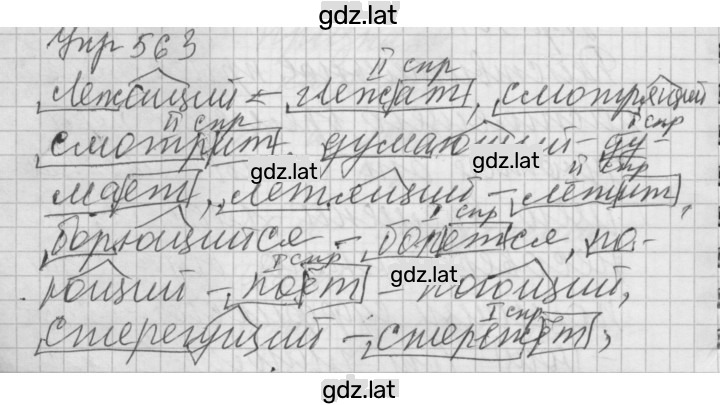 gdz.lat
Упр 563
II спр
Лежащий - лежат, смотрящий
II спр I спр
смотрит. думающий - ду-
gdz.lat gdz.lat
II спр
мает, летящий - летит,
I спр
борющийся - борется, по-
I спр gdz.lat
ющий - поёт - поющий,
I спр
стерегущий - стережёт,
gdz.lat